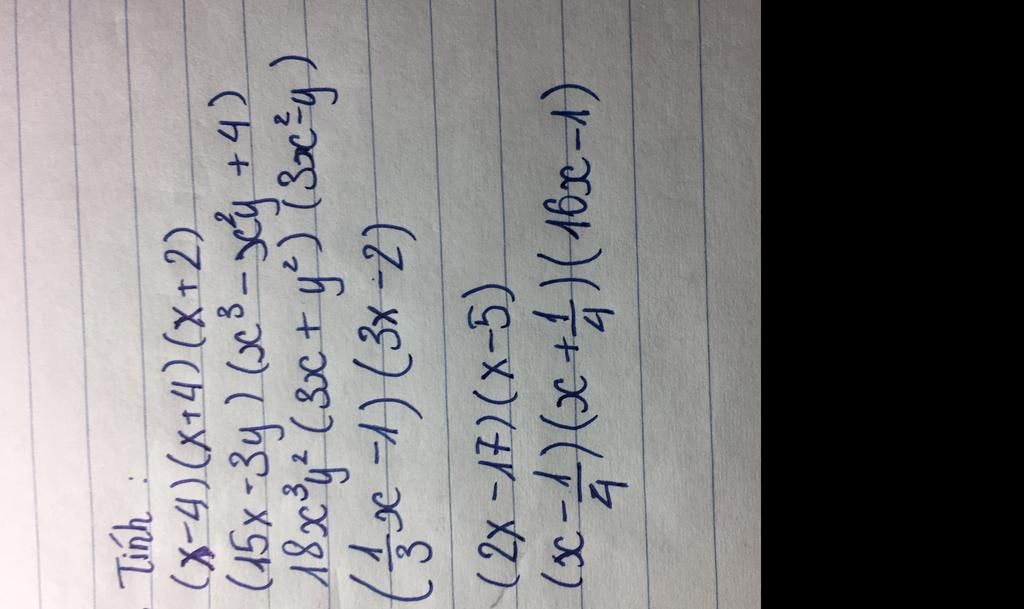 Tính :
(x-4)(x+4)(x+2)
(15x-3y)(x³-x²y+4)
18x³y²(3x+y²)(3x²-y)
(1/3x-1)(3x-2)
(2x-17)(x-5)
(x-1/4)(x+1/4)(16x-1)